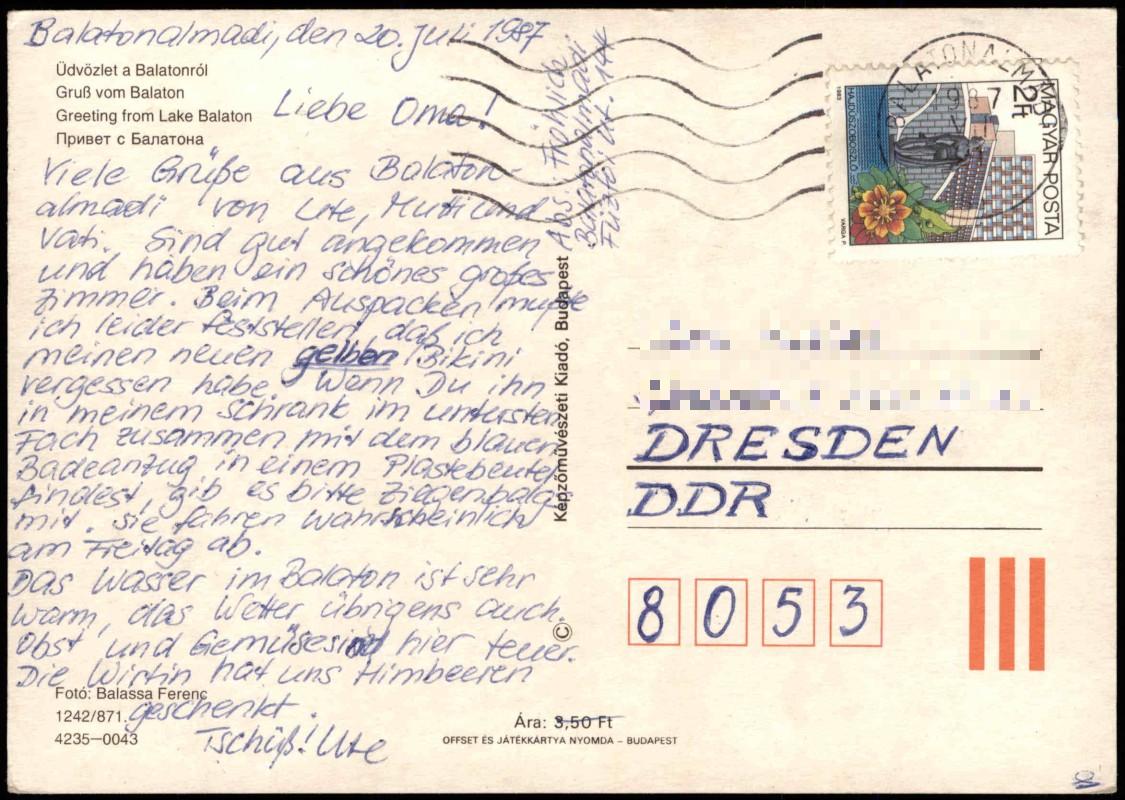 Balatonalmadi, den 20. Juli 1987
Üdvözlet a Balatonról
Gruß vom Balaton
Greeting from Lake Balaton
Привет с Балатона
Liebe Oma!
Viele Grüße aus Balaton-
almadi von Ute, Mutti und
Vati. Sind gut angekommen
und haben ein schönes großes
Zimmer. Beim Auspacken mußte
ich leider feststellen, daß ich
meinen neuen gelben Bikini
vergessen habe. Wenn Du ihn
in meinem Schrank im untersten
Fach zusammen mit dem blauen
Badeanzug in einem Plastebeutel
findest, gib es bitte Ziegenbalg
mit. Sie fahren wahrscheinlich
am Freitag ab.
Das Wasser im Balaton ist sehr
warm, das Wetter übrigens auch.
Obst und Gemüse sind hier teuer.
Die Wirtin hat uns Himbeeren
geschenkt.
Tschüß! Ute
Fotó: Balassa Ferenc
1242/871.
4235—0043
Abs. Fröhlich
Balatonalmádi
Képzőművészeti Kiadó, Budapest
©
Ára: 3,50 Ft
OFFSET ÉS JÁTÉKKÁRTYA NYOMDA – BUDAPEST
BALATONALM
987
2Ft
MAGYAR POSTA
HAJDÚSZOBOSZLÓ
1983
VARGA P.
DRESDEN
DDR
8 0 5 3